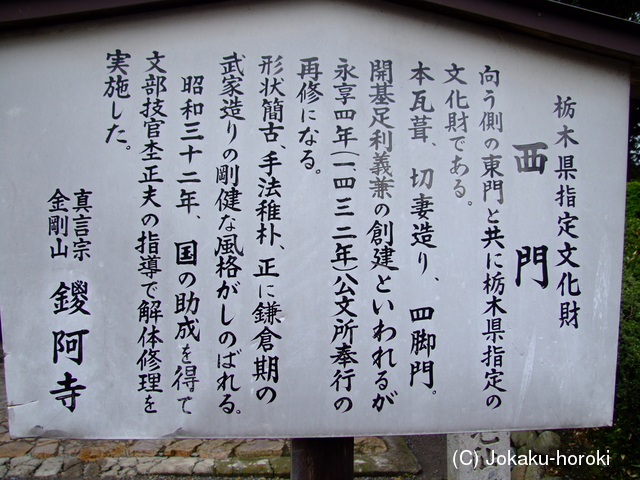 栃木県指定文化財
西門
向う側の東門と共に栃木県指定の
文化財である。
本瓦葺、切妻造り、四脚門。
開基足利義兼の創建といわれるが
永享四年(一四三二年)公文所奉行の
再修になる。
形状簡古、手法稚朴、正に鎌倉期の
武家造りの剛健な風格がしのばれる。
昭和三十二年、国の助成を得て
文部技官杢正夫の指導で解体修理を
実施した。
真言宗
金剛山
鑁阿寺
(C) Jokaku-horoki